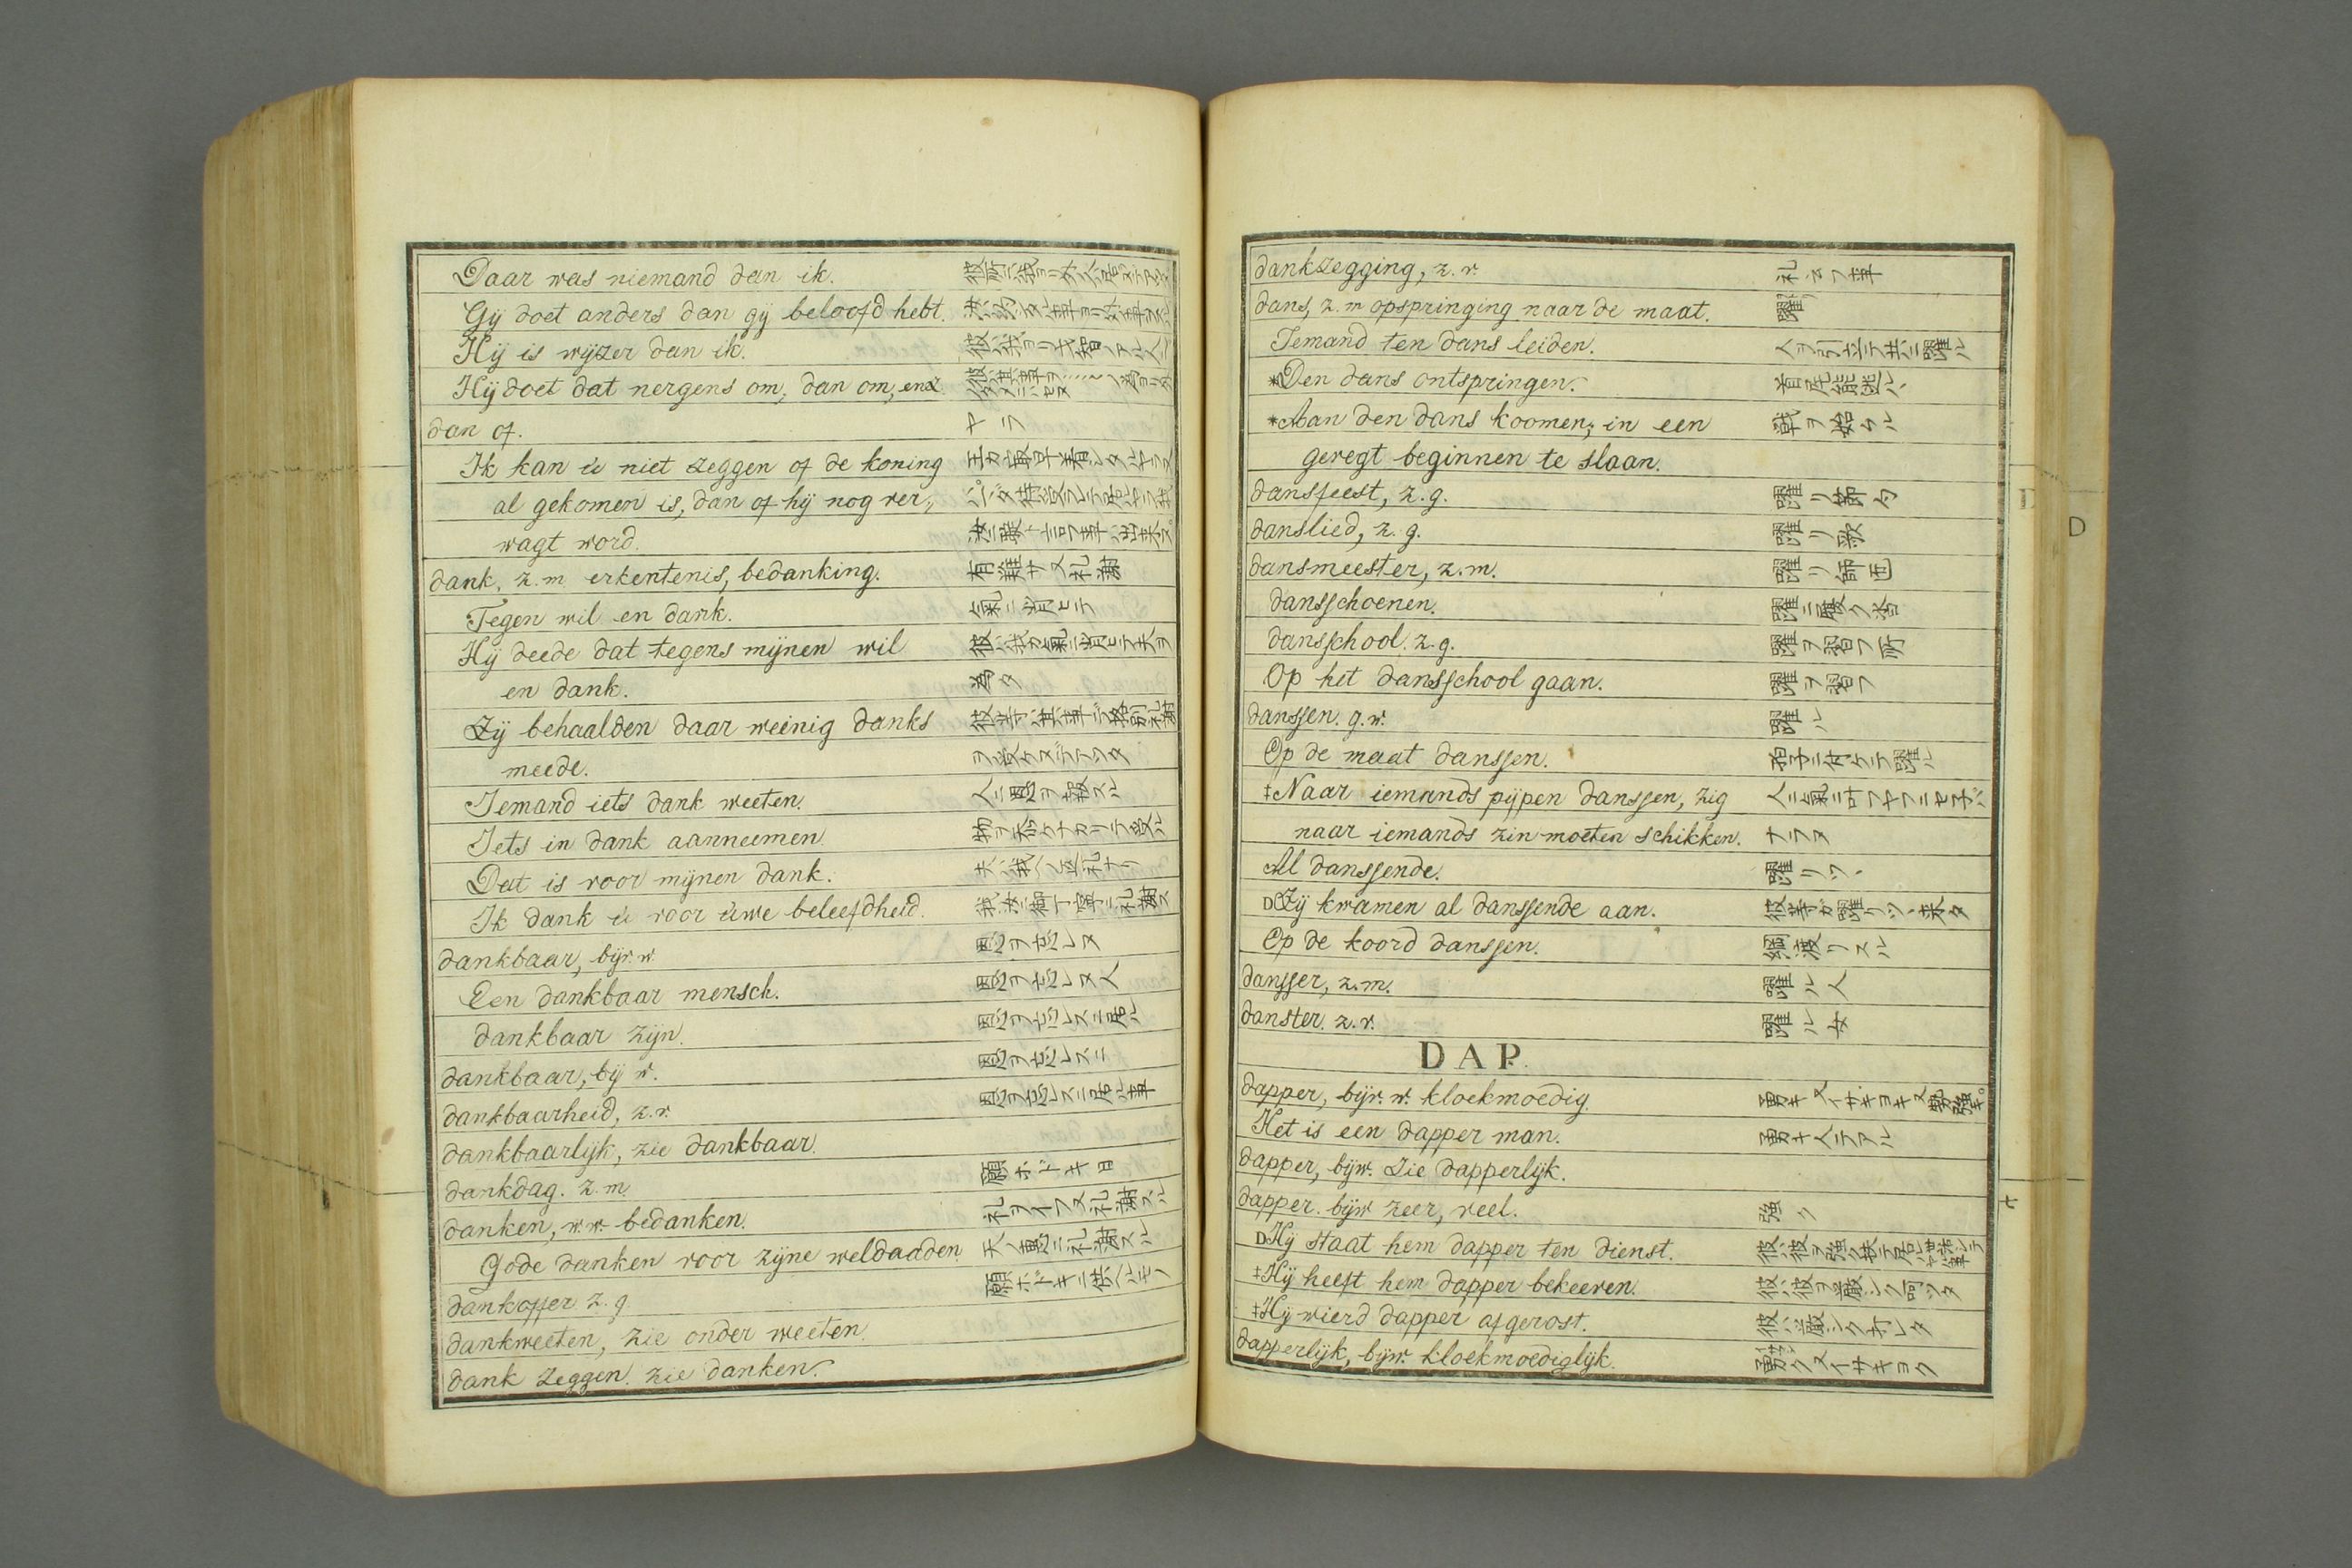 Daar was niemand dan ik.
Gij doet anders dan gij beloofd hebt.
Hij is wijzer dan ik.
Hij doet dat nergens om, dan om, enz
dan of. ヤラ
Ik kan ú niet zeggen of de koning
al gekomen is, dan of hij nog ver„
wagt word.
dank, z.m erkentenis, bedanking. 有難サ又礼謝
Tegen wil en dank. 氣ニ背ヒテ
Hij deede dat tegens mijnen wil 彼ハ我カ氣ニ背ヒテ夫ヲ
en dank. 為タ
Zij behaalden daar weinig danks
meede. ヲ受ケズデアツタ
Iemand iets dank weeten. 人ニ恩ヲ報スル
Iets in dank aanneemen 物ヲ忝ケナガリテ受ル
Dat is voor mijnen dank.
Ik dank ú voor úwe beleefdheid.
dankbaar, bijv. w. 恩ヲ忘レヌ
Een dankbaar mensch. 恩ヲ忘レヌ人
dankbaar zijn. 恩ヲ忘レズニ居ル
dankbaar, bij w. 恩ヲ忘レズニ
dankbaarheid, z.v. 恩ヲ忘レズニ居ル事
dankbaarlijk, zie dankbaar.
dankdag. z.m. 願ホドキ日
danken, w.w. bedanken. 礼ヲイフ又礼謝スル
Gode danken voor zijne weldaaden. 天ノ恵ニ礼謝スル
dankoffer z.g. 願ホドキニ供ヘルモノ
dankweeten, zie onder weeten.
dank zeggen. zie danken.
dankzegging, z.v. 礼云フ事
dans, z.m opspringing naar de maat. 躍
Iemand ten dans leiden. 人ヲ引立テ共ニ躍ル
*Den dans ontspringen. 首尾能迯ル
*Aan den dans koomen; in een 戦ヲ始ムル
geregt beginnen te slaan.
dansfeest, z.g. 躍リ節句
danslied, z.g. 躍リ歌
dansmeester, z.m. 躍リ師匠
dansschoenen. 躍ニ履ク沓
dansschool. z.g. 躍ヲ習フ所
Op het dansschool gaan. 躍ヲ習フ
danssen. g.w. 躍ル
Op de maat danssen. 拍子ニ付ケテ躍ル
‡Naar iemands pijpen danssen, zig 人ニ氣ニ叶フヤフニセ子バ
naar iemands zin moeten schikken. ナラヌ
Al danssende. 躍リツヽ
DZij kwamen al danssende aan. 彼等ガ躍リツヽ来タ
Op de koord danssen. 綱渡リスル
dansser, z.m. 躍ル人
danster. z.v. 躍ル女
DAP.
dapper, bijv. w. kloekmoedig. 勇キ又イサギヨキ又勢強キ。
Het is een dapper man. 勇キ人デアル
dapper, bijw. Zie dapperlijk.
dapper. bijw zeer, veel. 強ク
DHij staat hem dapper ten dienst.
‡Hij heeft hem dapper bekeeven. 彼ハ彼ヲ厳シク呵ツタ
‡Hij wierd dapper afgerost. 彼ハ厳シク打レタ
dapperlijk, bijw. kloekmoediglijk. 勇ク又イサキヨク
D
D